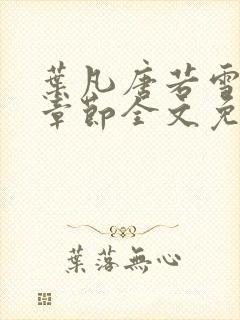 葉凡唐若雪
章節全文免
葉落無心